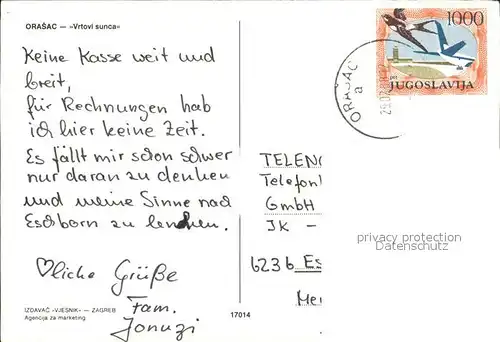 ORAŠAC — »Vrtovi sunca«
Keine Kasse weit und
breit,
für Rechnungen hab
ich hier keine Zeit.
Es fällt mir schon schwer
nur daran zu denken
und meine Sinne nach
Eschborn zu lenken.
♡liche Grüße
Fam.
Jonuzi
IZDAVAČ »VJESNIK« — ZAGREB
Agencija za marketing
17014
1000
JUGOSLAVIJA
ORAŠAC
a
TELEN
Telefon
GmbH
JK -
6236 Es
privacy protection
Datenschutz